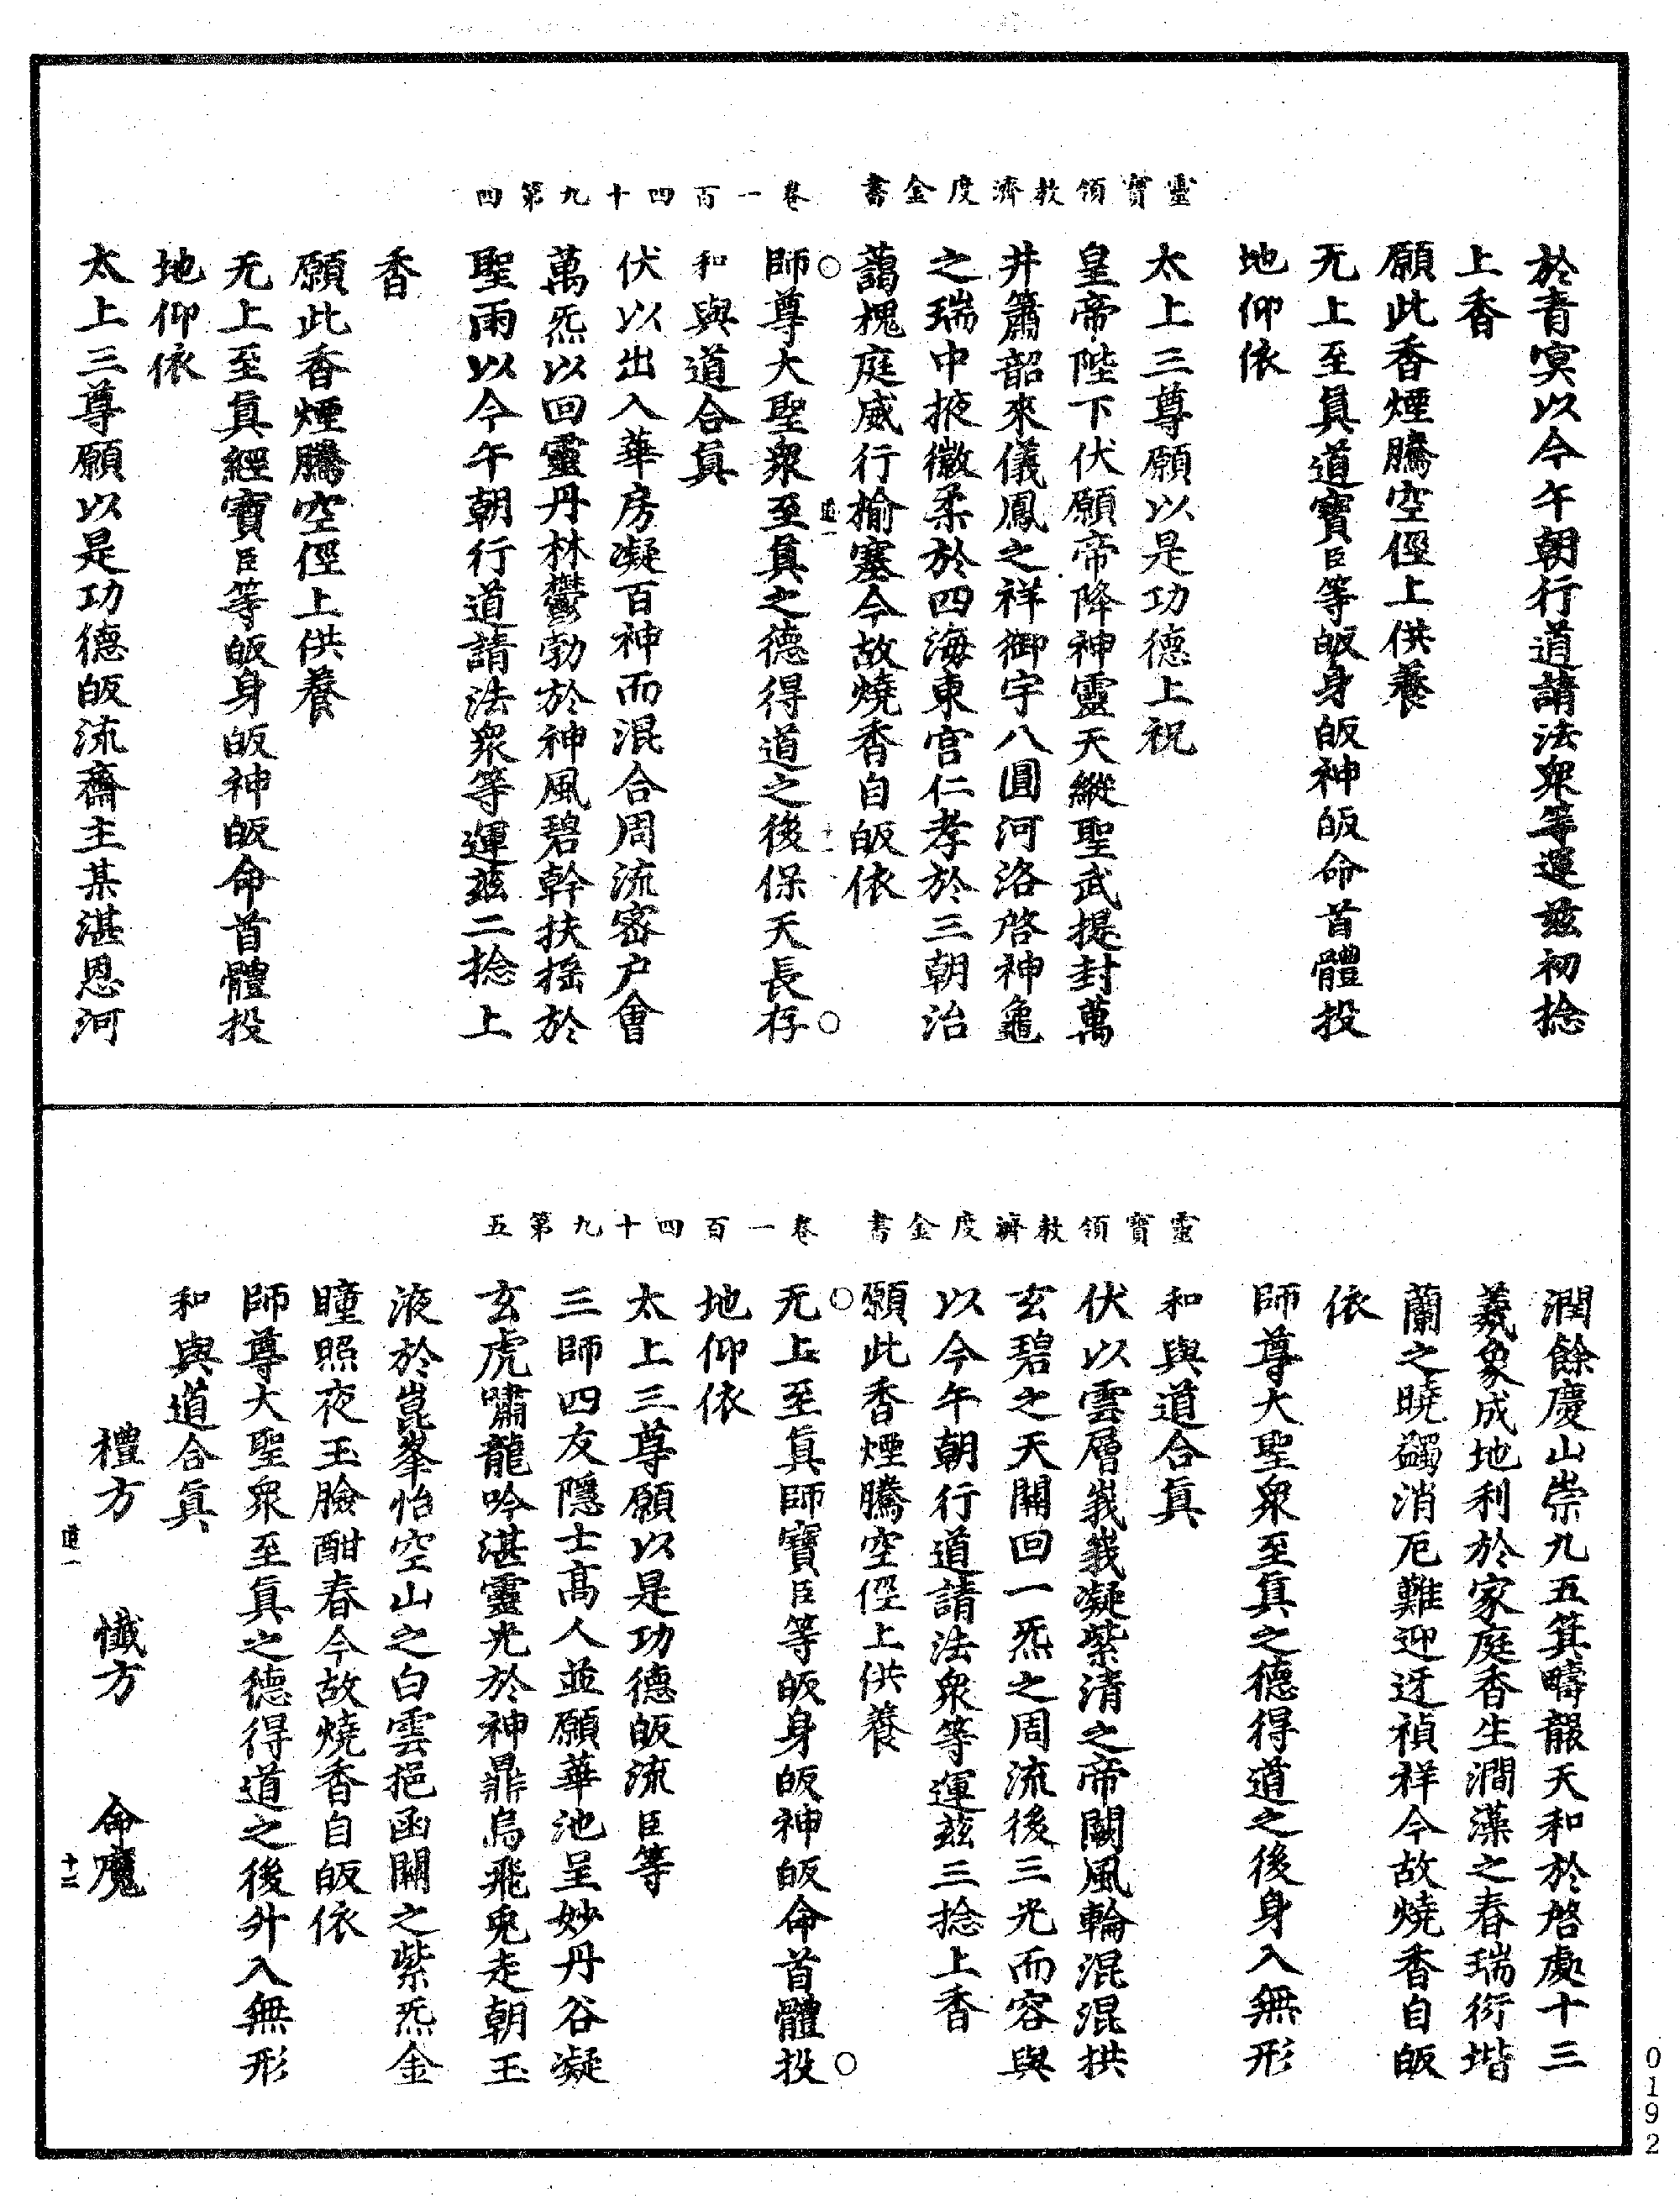 靈寶領教濟度金書　卷一百四十九第四
於青冥以今午朝行道請法衆等運茲初捻
上香
願此香煙騰空徑上供養
无上至眞道寶臣等皈身皈神皈命首體投
地仰依
太上三尊願以是功德上祝
皇帝陛下伏願帝降神靈天縱聖武提封萬
井簫韶來儀鳳之祥御宇八圓河洛啓神龜
之瑞中掖徽柔於四海東宮仁孝於三朝治
藹槐庭威行榆塞今故燒香自皈依
師尊大聖衆至眞之德得道之後保天長存
和與道合眞
伏以出入華房凝百神而混合周流密戶會
萬炁以回靈丹林鬱勃於神風碧幹扶搖於
聖雨以今午朝行道請法衆等運茲二捻上
香
願此香煙騰空徑上供養
无上至眞經寶臣等皈身皈神皈命首體投
地仰依
太上三尊願以是功德皈流齋主某湛恩河
靈寶領教濟度金書　卷一百四十九第五
潤餘慶山崇九五箕疇嘏天和於啓處十三
羲象成地利於家庭香生澗藻之春瑞衍堦
蘭之曉蠲消厄難迎迓禎祥今故燒香自皈
依
師尊大聖衆至眞之德得道之後身入無形
和與道合眞
伏以雲層峩峩凝紫清之帝闕風輪混混拱
玄碧之天關回一炁之周流後三光而容與
以今午朝行道請法衆等運茲三捻上香
願此香煙騰空徑上供養
无上至眞師寶臣等皈身皈神皈命首體投
地仰依
太上三尊願以是功德皈流臣等
三師四友隱士高人並願華池呈妙丹谷凝
玄虎嘯龍吟湛靈光於神鼎烏飛兎走朝玉
液於崑峯怡空山之白雲挹函關之紫炁金
瞳照夜玉臉酣春今故燒香自皈依
師尊大聖衆至眞之德得道之後升入無形
和與道合眞
禮方　懺方　命魔
道一　十二
0192